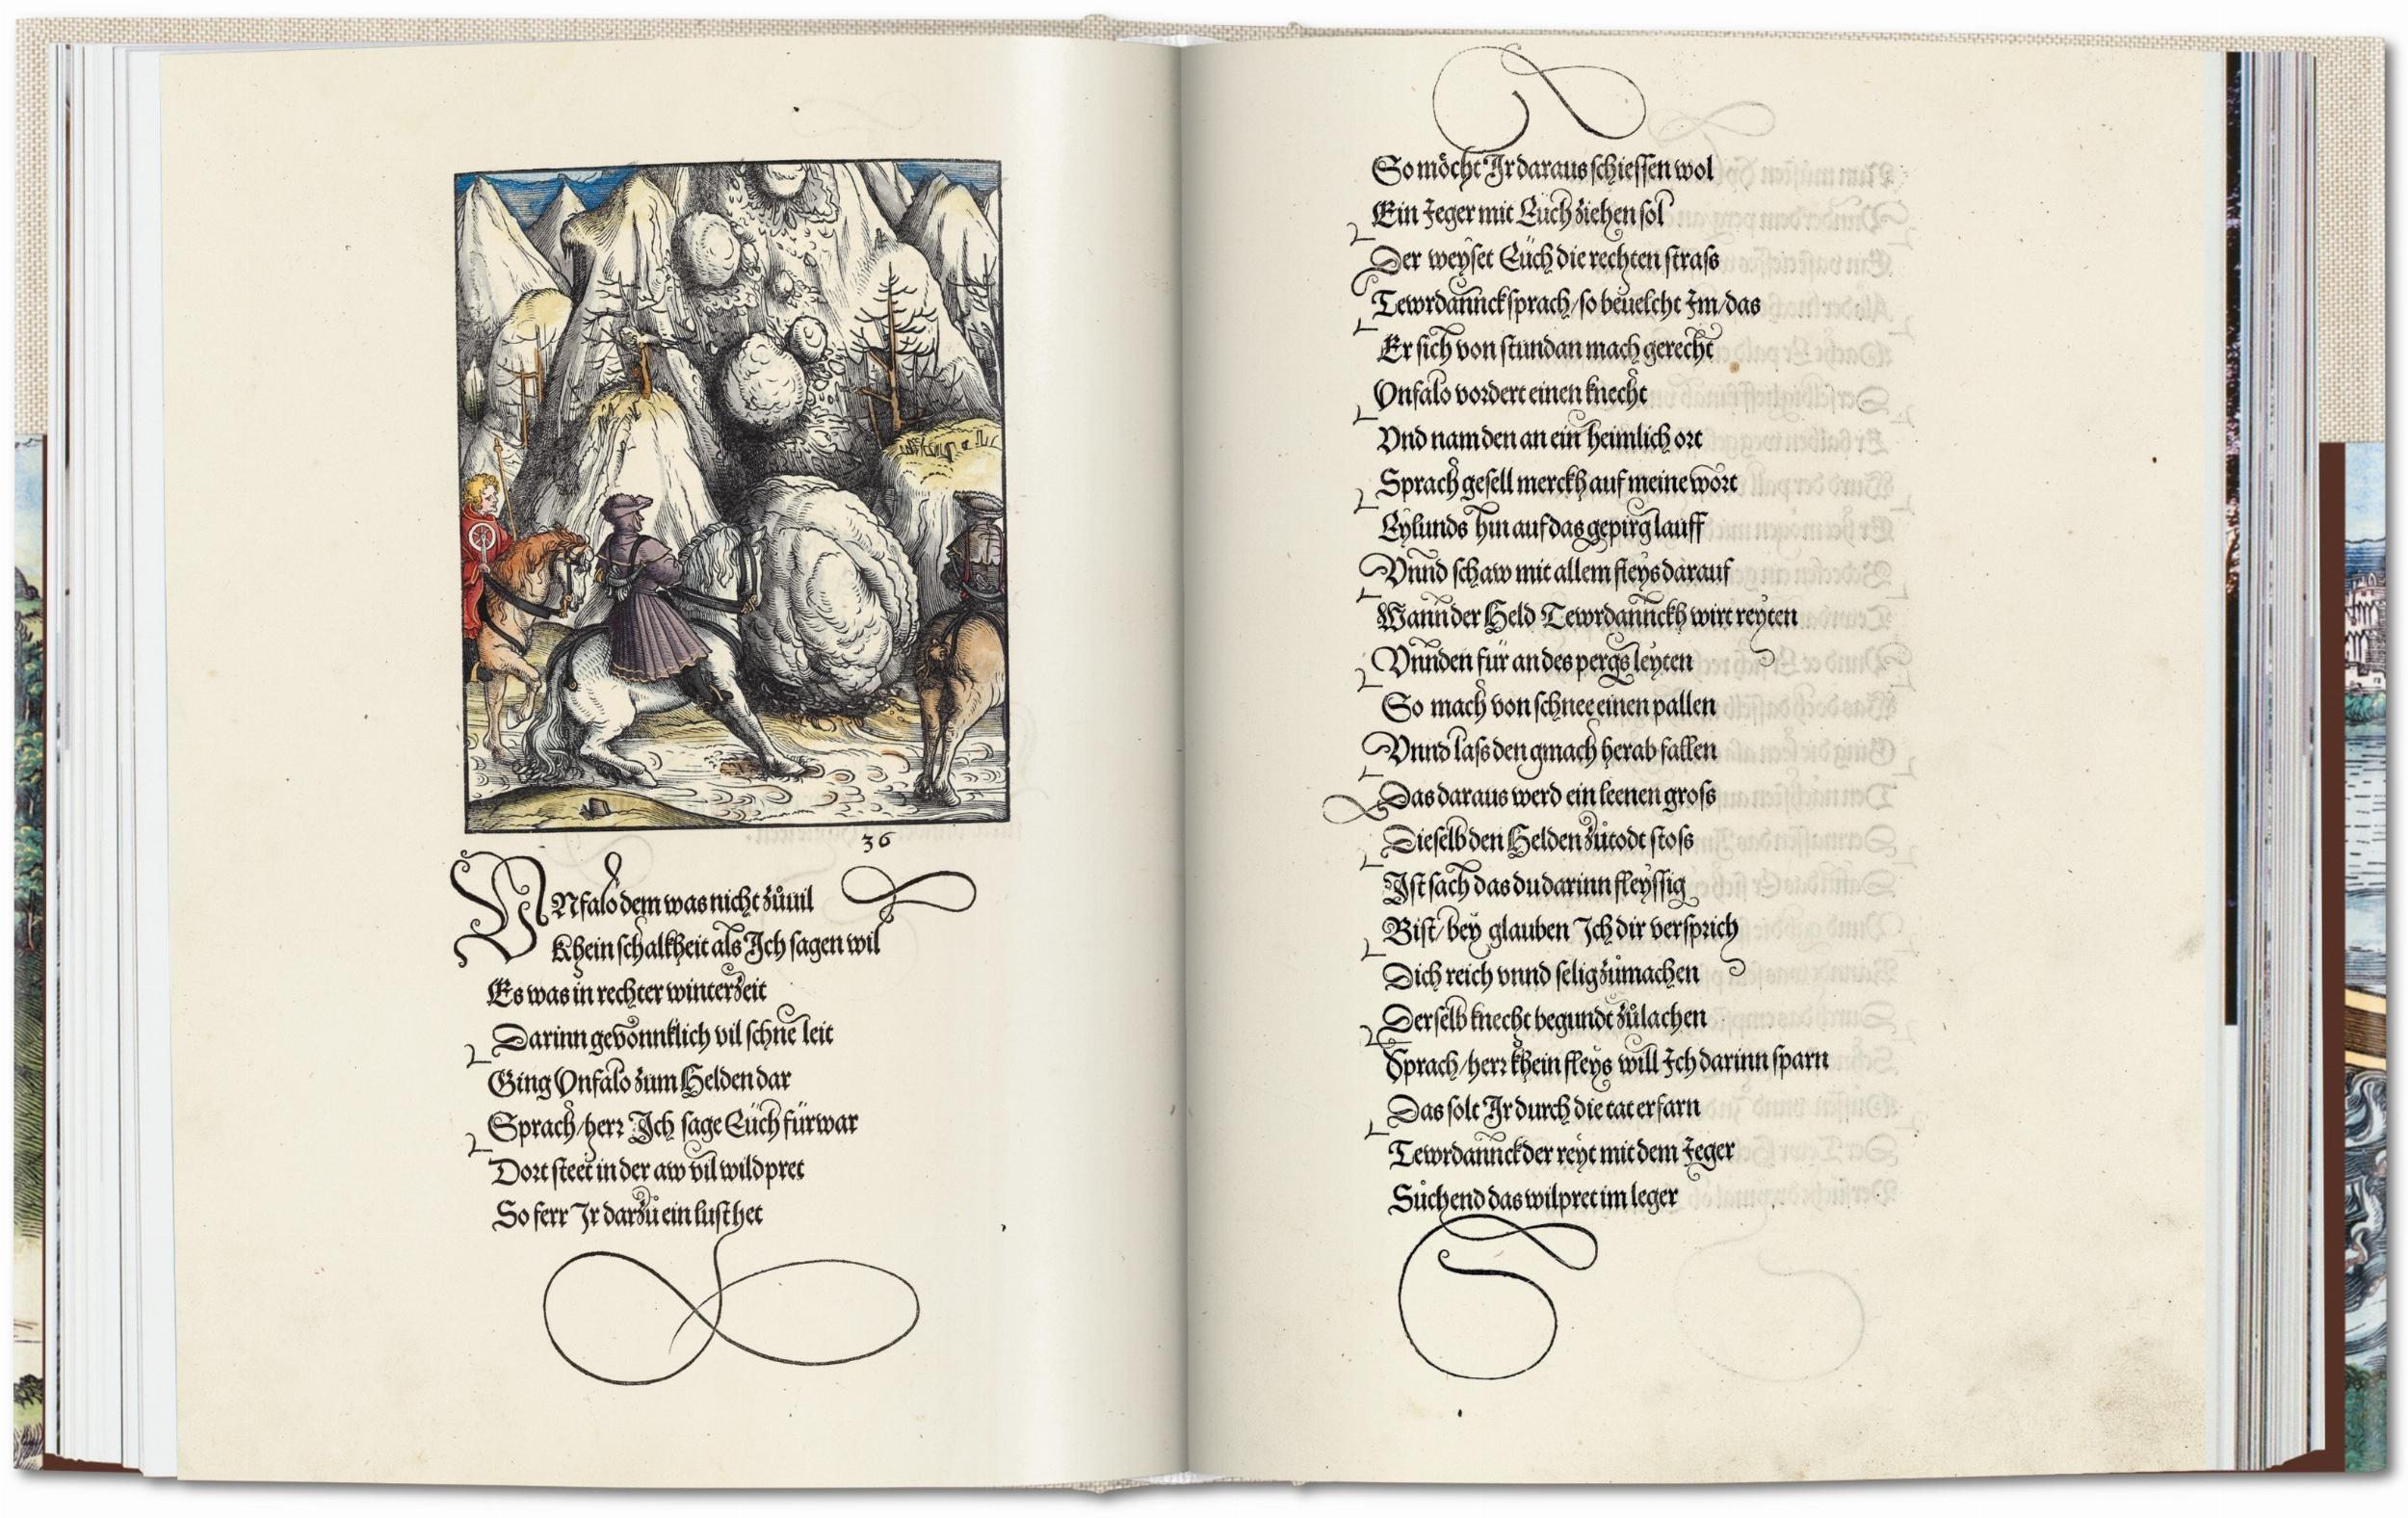 36
VNfalo dem was nicht zůuil
Khein schalkheit als Ich sagen wil
Es was in rechter winterzeit
Darinn gevonnklich vil schne leit
Ging Vnfalo zum Helden dar
Sprach/herr Ich sage Eüch fürwar
Dort steet in der aw vil wildpret
So ferr Ir darzů ein lust het
So möcht Ir daraus schiessen wol
Ein Jeger mit Eüch ziehen sol
Der weyset Eüch die rechten strass
Tewrdannck sprach/so beuelcht Im/das
Er sich von stundan mach gerecht
Vnfalo vordert einen knecht
Vnd nam den an ein heimlich ort
Sprach gesell merckh auf meine wort
Eylunds hin auf das gepirg lauff
Vnnd schaw mit allem fleys darauf
Wann der Held Tewrdannckh wirt reyten
Vnnden für an des pergs leyten
So mach von schnee einen pallen
Vnnd lass den gmach herab fallen
Das daraus werd ein leenen gross
Dieselb den Helden zůtodt stoss
Ist sach das du darinn fleyssig
Bist/bey glauben Ich dir versprich
Dich reich vnnd selig zůmachen
Derselb knecht begundt zůlachen
Sprach/herr khein fleys will Ich darinn sparn
Das solt Ir durch die tat erfarn
Tewrdannck der reyt mit dem Jeger
Sůchend das wilpret im leger